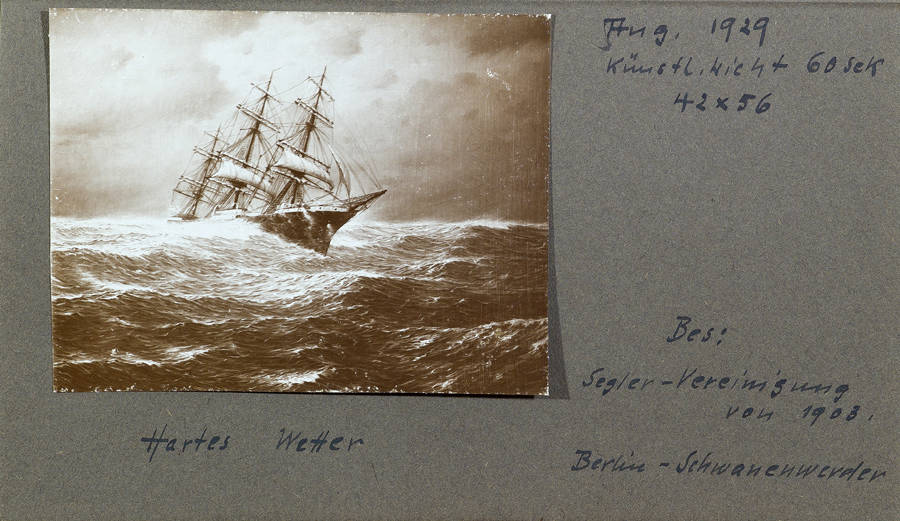 Aug. 1929
Künstl. Licht 60 Sek
42 x 56
Bes:
Segler-Vereinigung
von 1903.
Hartes Wetter
Berlin - Schwanenwerder